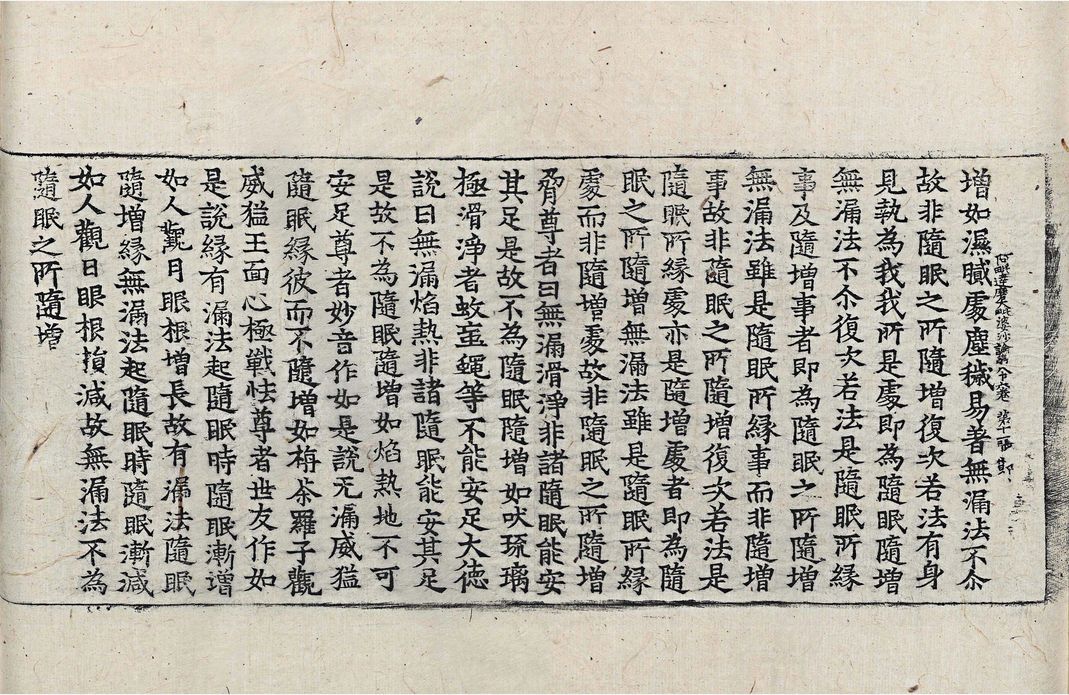 阿毗達磨大毗婆沙論第八十六卷 第十二張 鄣
增如濕膩處塵穢易著無漏法不尒
故非隨眠之所隨增復次若法有身
見執為我我所是處即為隨眠隨增
無漏法不尒復次若法是隨眠所緣
事及隨增事者即為隨眠之所隨增
無漏法雖是隨眠所緣事而非隨增
事故非隨眠之所隨增復次若法是
隨眠所緣處亦是隨增處者即為隨
眠之所隨增無漏法雖是隨眠所緣
處而非隨增處故非隨眠之所隨增
脅尊者曰無漏滑淨非諸隨眠能安
其足是故不為隨眠隨增如吠琉璃
極滑淨者蚊蚉蠅等不能安足大德
說曰無漏焰熱非諸隨眠能安其足
是故不為隨眠隨增如焰熱地不可
安足尊者妙音作如是說无漏威猛
隨眠緣彼而不隨增如栴荼羅子觀
威猛王面心極戰怯尊者世友作如
是說緣有漏法起隨眠時隨眠漸增
如人觀月眼根增長故有漏法隨眠
隨增緣無漏法起隨眠時隨眠漸減
如人觀日眼根損減故無漏法不為
隨眠之所隨增